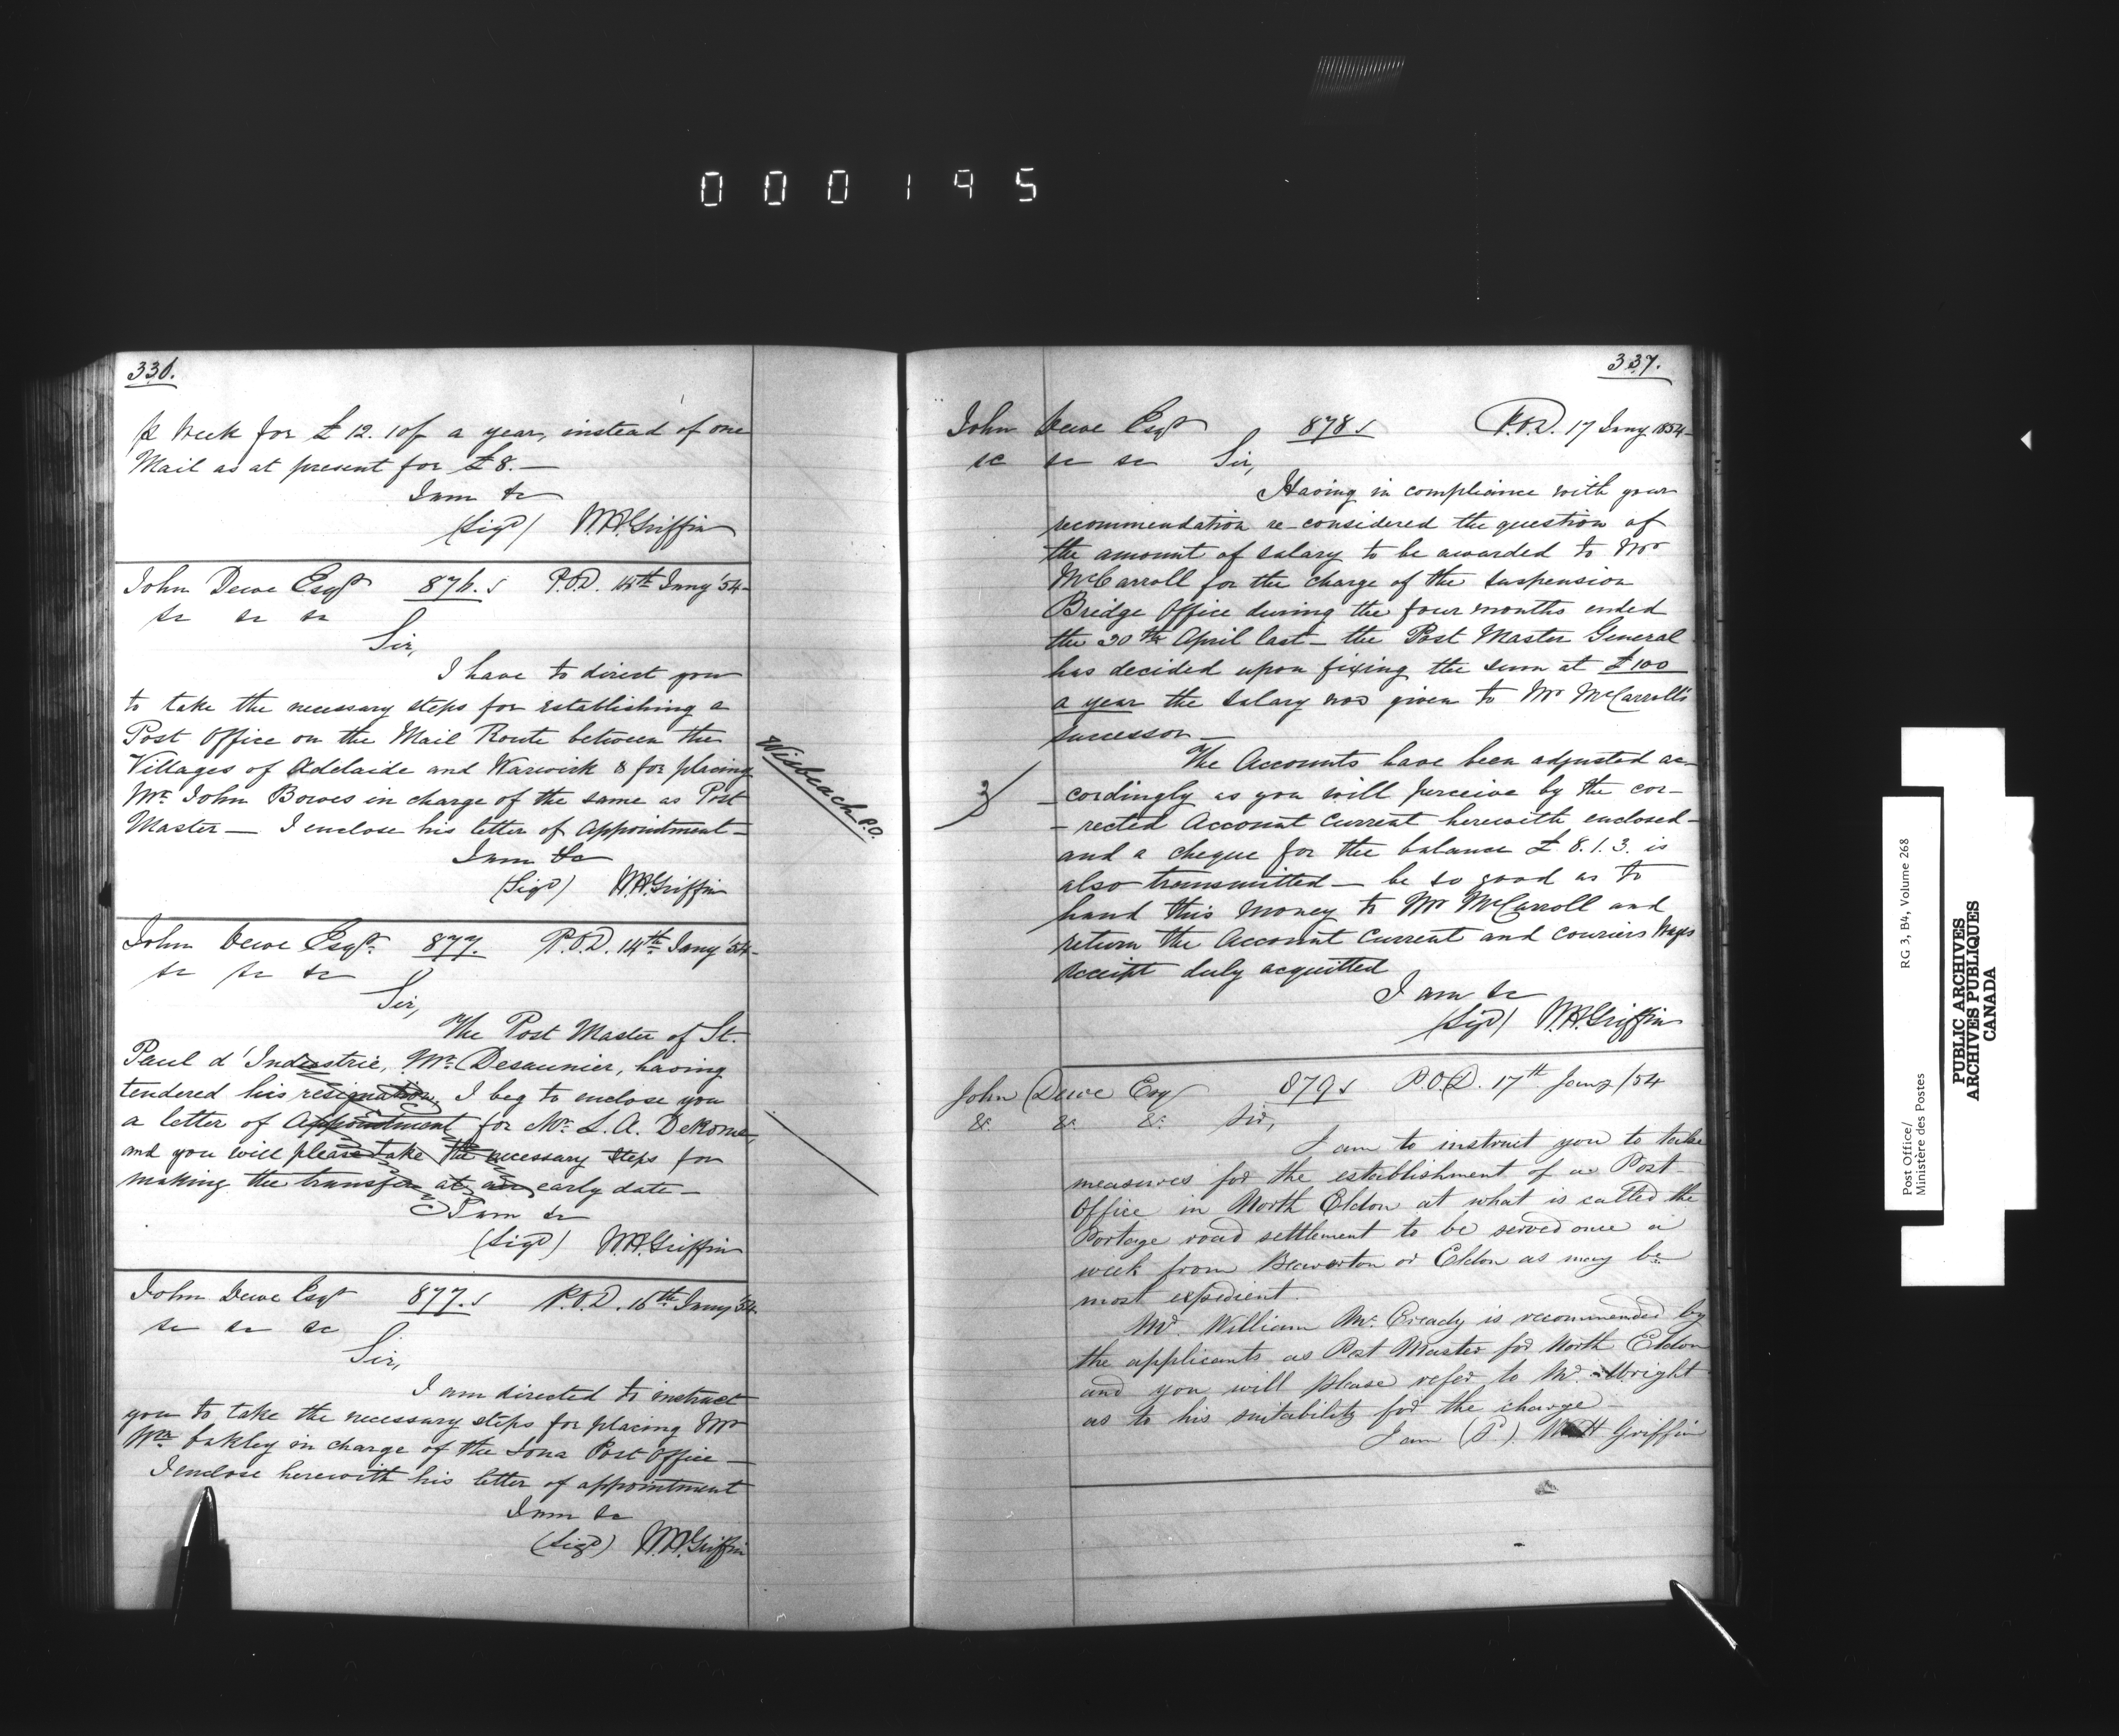 000195
336.
p Week for £12.10/ a year, instead of one
Mail as at present for £8.—
I am &c
(Sigd) W.H. Griffin
John Dewe Esqr 876. s P.O.D. 14th Jany '54-
&c &c &c
Sir,
I have to direct you
to take the necessary steps for establishing a
Post Office on the Mail Route between the
Villages of Adelaide and Warwick & for placing
Mr. John Bowes in charge of the same as Post
Master — I enclose his letter of Appointment —
I am &c
(Sigd) W.H. Griffin
Wisbeach P.O.
John Dewe Esqr. 877. P.O.D. 14th Jany '54-
&c &c &c
Sir,
The Post Master of St.
Paul d'Industrie, Mr. Desaunier, having
tendered his resignation, I beg to enclose you
a letter of Appointment for Mr. L. A. Dekome,
and you will please take the necessary steps for
making the transfer at an early date —
I am &c
(Sigd) W.H. Griffin
John Dewe Esqr 877. s P.O.D. 16th Jany '54.
&c &c &c
Sir,
I am directed to instruct
you to take the necessary steps for placing Mr
Wm Oakley in charge of the Iona Post Office —
I enclose herewith his letter of appointment
I am &c
(Sigd) W.H. Griffin
337.
John Dewe Esqr 878 s P.O.D. 17 Jany 1854-
&c &c &c Sir,
Having in compliance with your
recommendation re-considered the question of
the amount of salary to be awarded to Mr
McCarroll for the charge of the Suspension
Bridge Office during the four months ended
the 30th April last — the Post Master General
has decided upon fixing the sum at £100
a year the salary now given to Mr McCarroll's
successor —
The Accounts have been adjusted ac-
- cordingly as you will perceive by the cor-
- rected Account Current herewith enclosed -
and a cheque for the balance £8.1.3. is
also transmitted — be so good as to
hand this Money to Mr McCarroll and
return the Account Current and Couriers Wages
receipt duly acquitted
I am &c
(Sigd) W.H. Griffin
John Dewe Esq 879 s P.O.D. 17th Jany /54
&c. &c. &c. Sir,
I am to instruct you to take
measures for the establishment of a Post-
Office in North Eldon at what is called the
Portage road settlement to be served once a
week from Beaverton or Eldon as may be
most expedient.
Mr. William Mc. Cready is recommended by
the applicants as Post Master for North Eldon
and you will please refer to Mr. Wright
as to his suitability for the charge —
I am (S.) W H Griffin
Post Office/
Ministère des Postes
RG 3, B4, Volume 268
PUBLIC ARCHIVES
ARCHIVES PUBLIQUES
CANADA